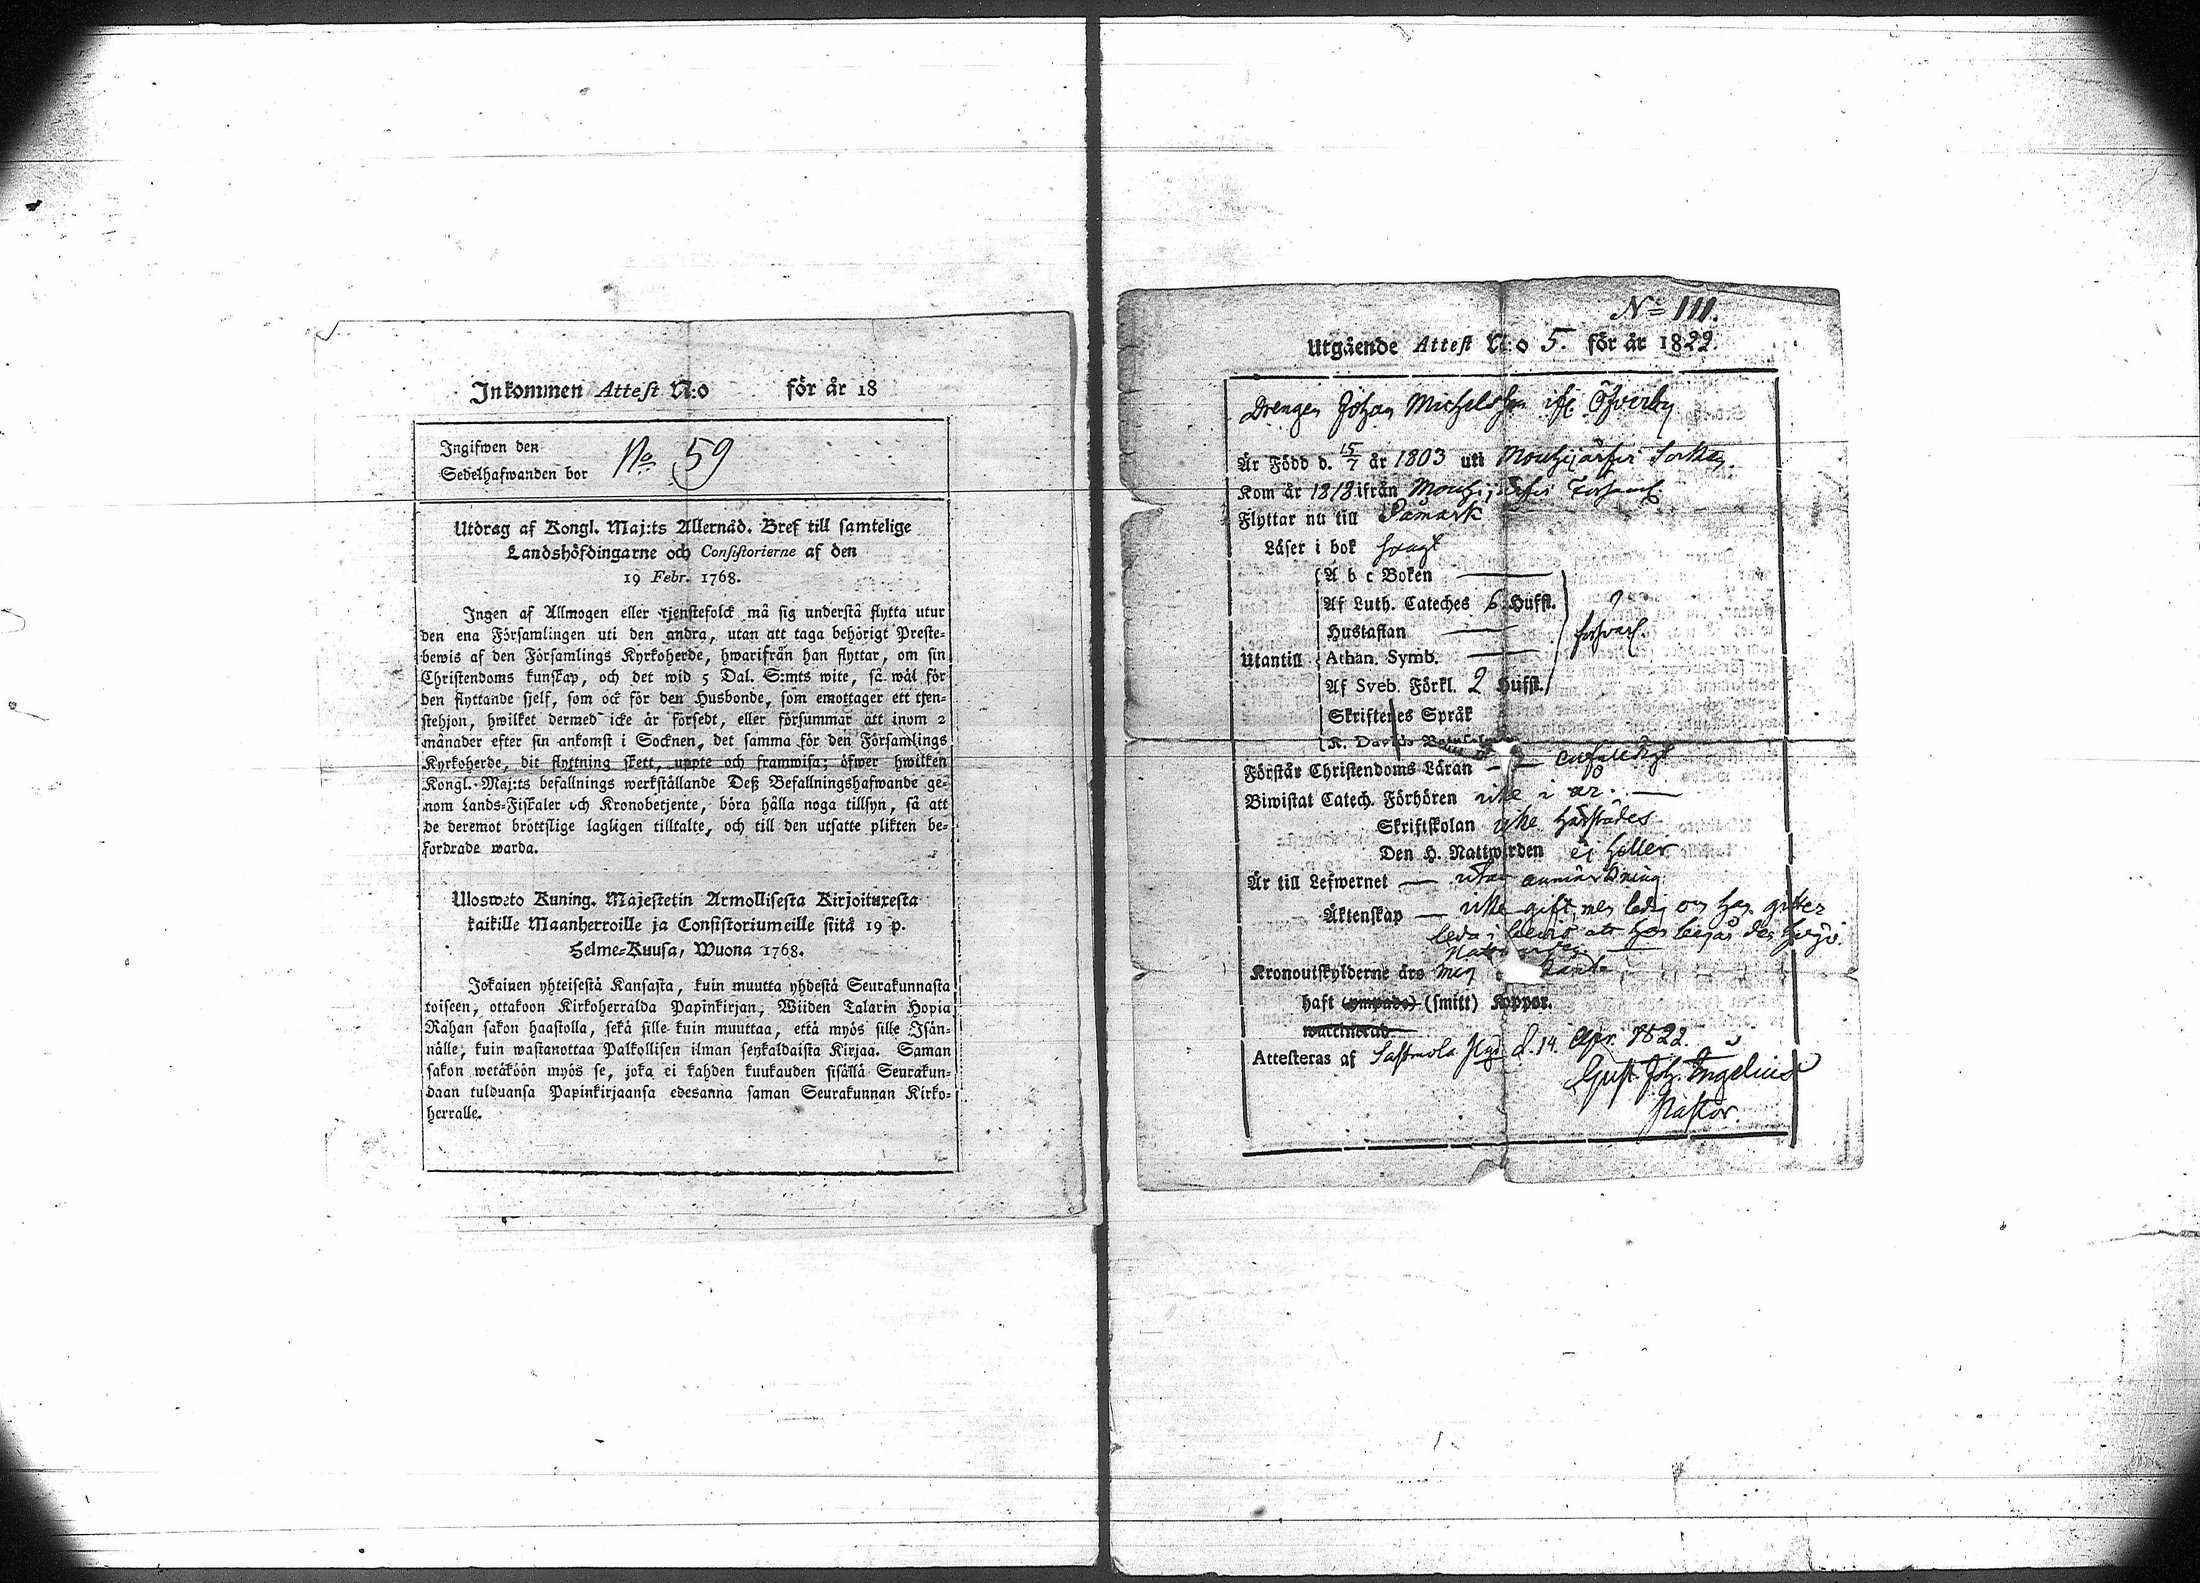 Inkommen Attest N:o för år 18
Ingifwen den
Sedelhafwanden bor No 59
Utdrag af Kongl. Maj:ts Allernåd. Bref till samtelige
Landshöfdingarne och Consistorierne af den
19 Febr. 1768.
Ingen af Allmogen eller tjenstefolck må sig understå flytta utur
den ena Församlingen uti den andra, utan att taga behörigt Preste-
bewis af den Församlings Kyrkoherde, hwarifrån han flyttar, om sin
Christendoms kunskap, och det wid 5 Dal. S:mts wite, så wäl för
den flyttande sjelf, som ock för den Husbonde, som emottager ett tjen-
stehjon, hwilket dermed icke är försedt, eller försummar att inom 2
månader efter sin ankomst i Socknen, det samma för den Församlings
Kyrkoherde, dit flyttning skett, uppte och framwisa; öfwer hwilken
Kongl. Maj:ts befallnings werkställande Deß Befallningshafwande ge-
nom Lands-Fiskaler och Kronobetjente, böra hålla noga tillsyn, så att
de deremot bröttslige lagligen tilltalte, och till den utsatte plikten be-
fordrade warda.
Ulosweto Kuning. Majestetin Armollisesta Kirjoituxesta
kaikille Maanherroille ja Consistoriumeille siitä 19 p.
Helme-Kuusa, Wuona 1768.
Jokainen yhteisestä Kansasta, kuin muutta yhdestä Seurakunnasta
toiseen, ottakoon Kirkoherralda Papinkirjan, Wiiden Talarin Hopia
Rahan sakon haastolla, sekä sille kuin muuttaa, että myös sille Isän-
nälle, kuin wastanottaa Palkollisen ilman senkaldaista Kirjaa. Saman
sakon wetäköön myös se, joka ei kahden kuukauden sisällä Seurakun-
daan tulduansa Papinkirjaansa edesanna saman Seurakunnan Kirko-
herralle.
No 111.
Utgående Attest N:o 5. för år 1822.
Drengen Johan Michelsson ifr. Öfverby
Är Född d. 15/7 år 1803 uti Mouhijärfvi Socken
Kom år 1818 ifrån Mouhijärfvi
Flyttar nu till Påmark
Läser i bok
A b c Boken
Af Luth. Cateches 6 Hufst.
Hustaflan
Utantill Athan. Symb. försvarl.
Af Sveb. Förkl. 2 Hufst.
Skriftenes Språk
K. Davids
Förstår Christendoms Läran enfaldigt
Biwistat Catech. Förhören icke i år.
Skriftskolan icke härstädes
Den H. Nattwarden ej heller
Är till Lefwernet utan anmärkning
Äktenskap icke gift, men ledig om han gitter
leda i bevis att han begått den helga
Nattvarden
Kronoutskylderne äro
haft (ympade) (smitt) Koppor.
waccinerad
Attesteras af Sastmola d. 14 Apr. 1822.
Gust. Joh. Engelius
Pastor.